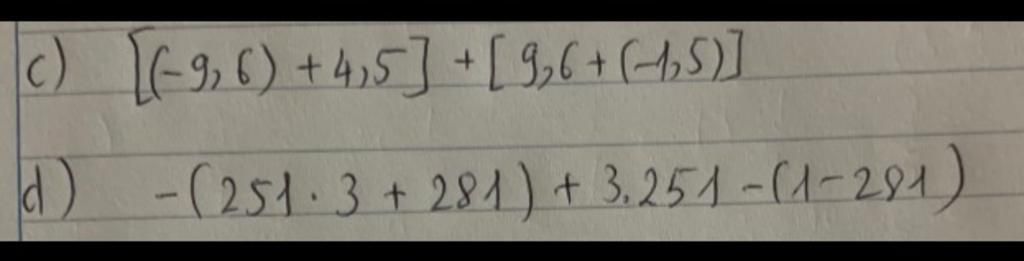 c) [(-9,6) + 4,5] + [9,6 + (-1,5)]
d) -(251 . 3 + 281) + 3.251 - (1 - 281)